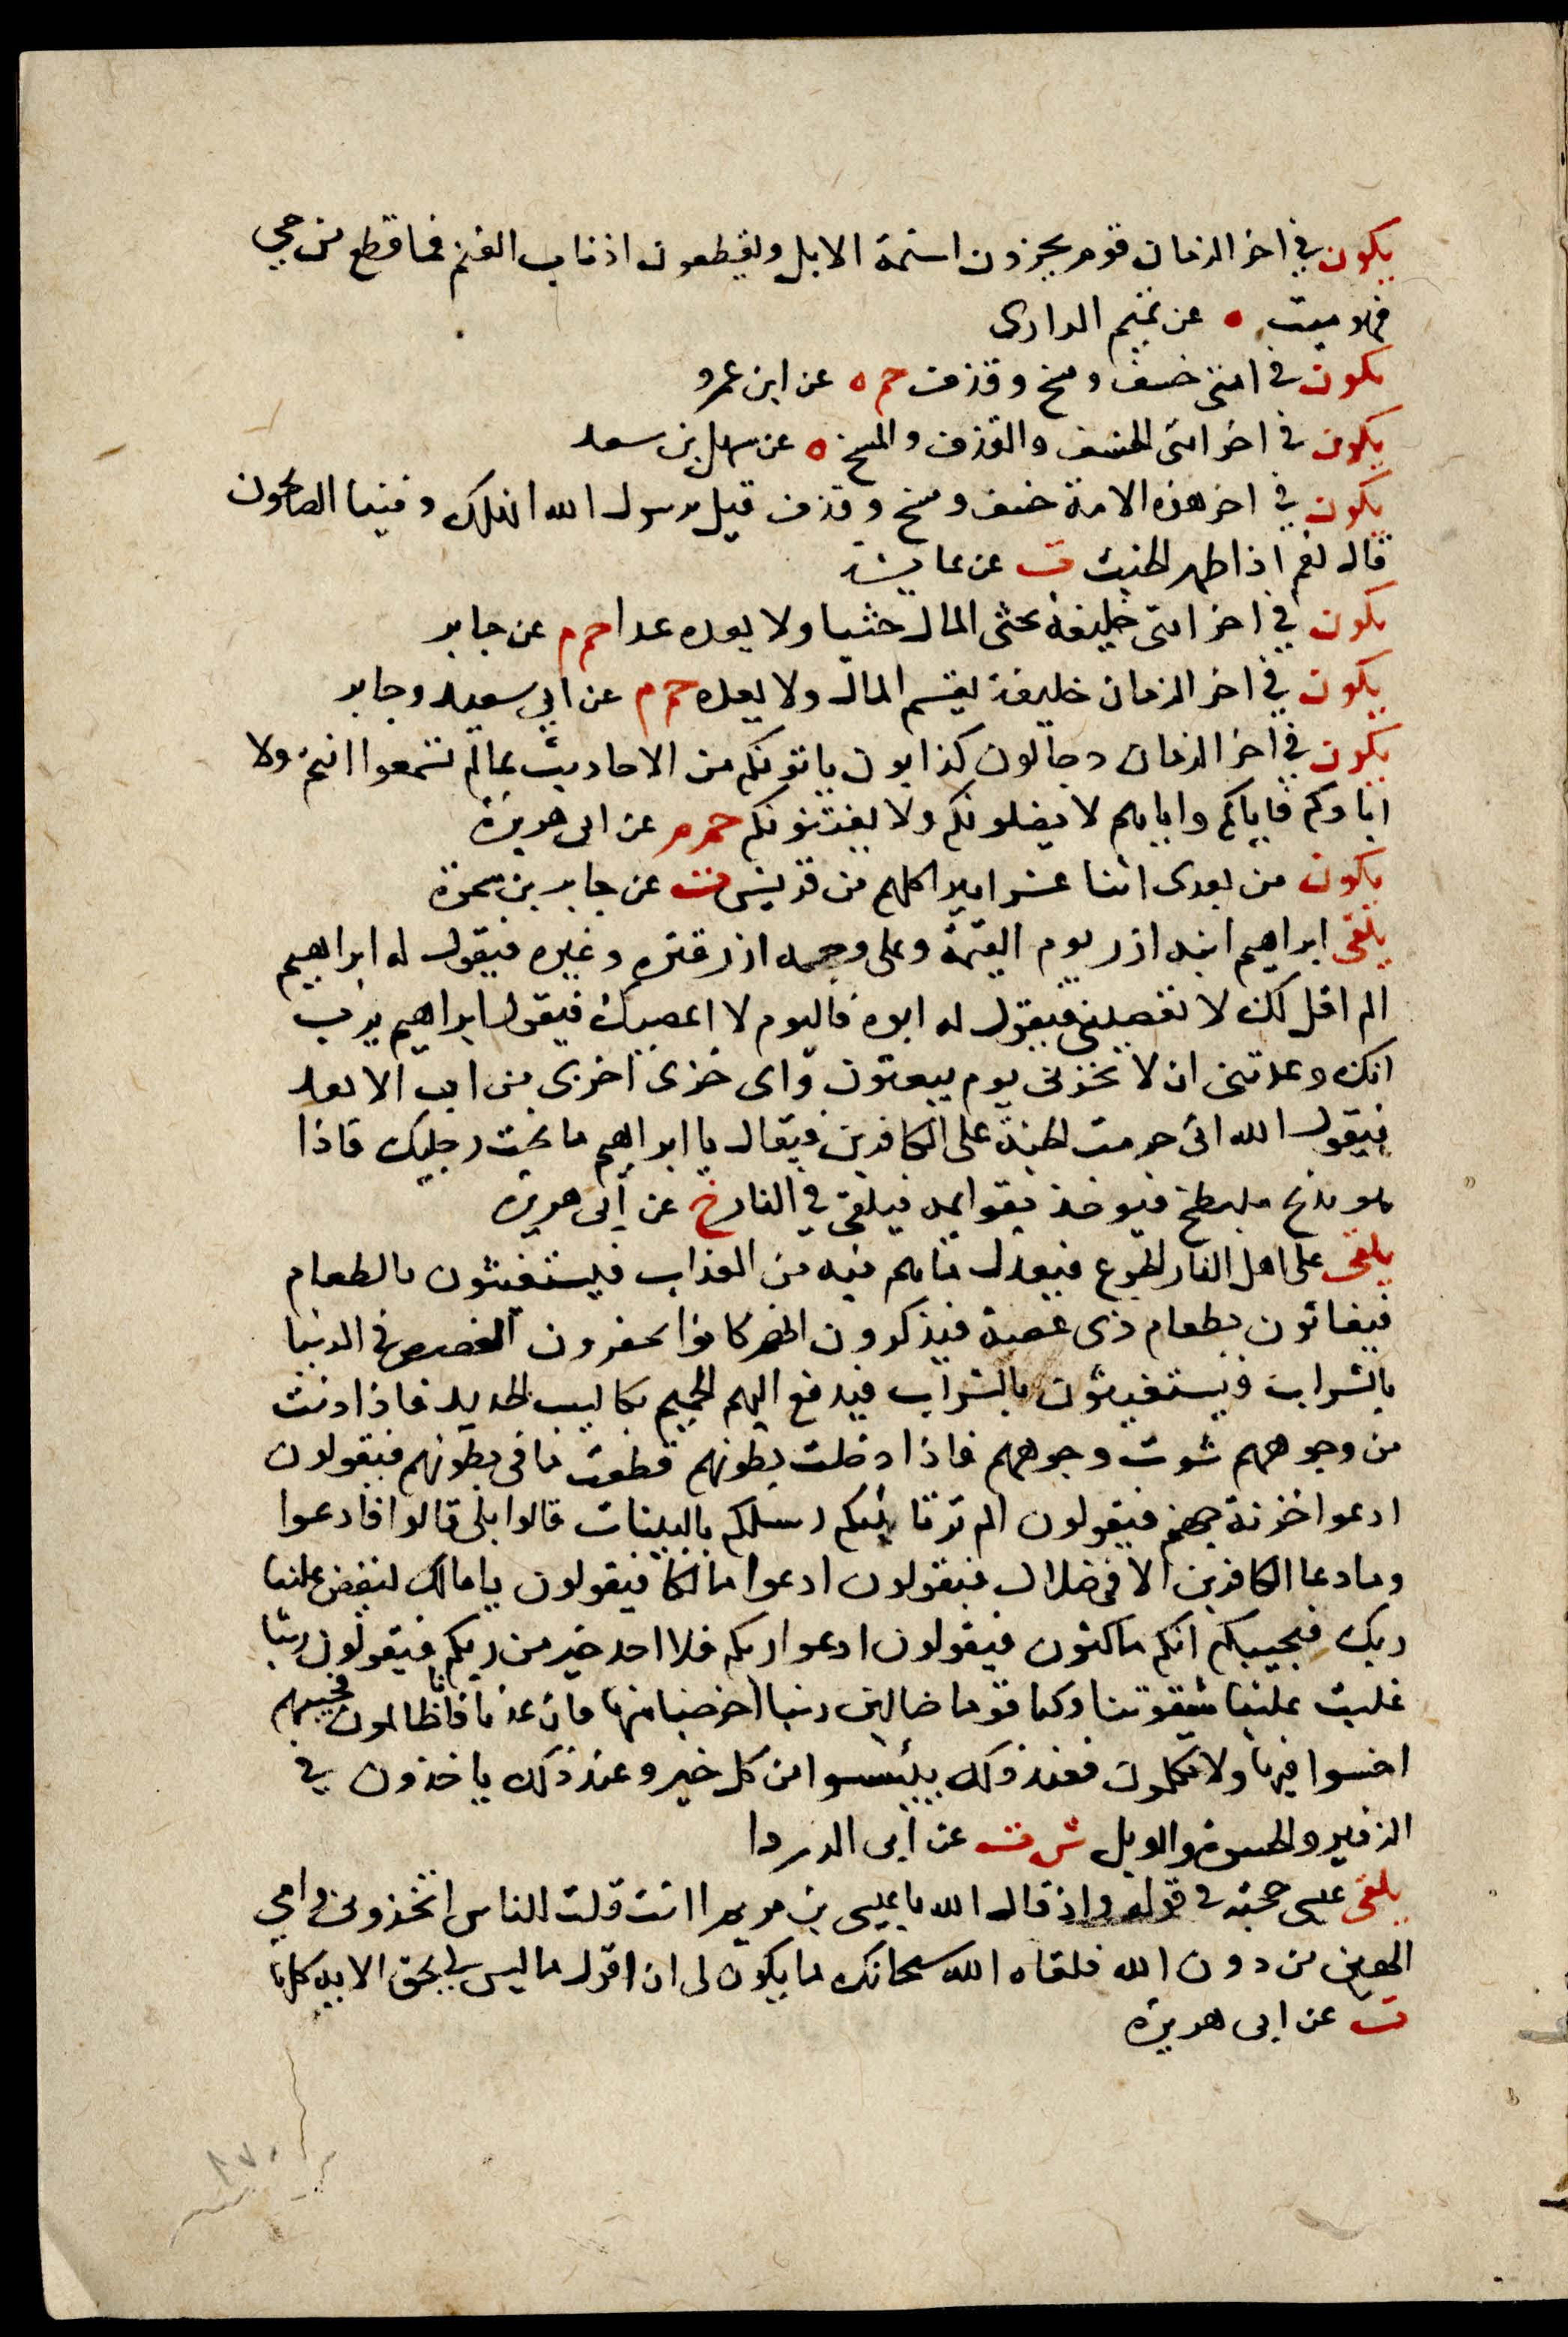 يكون في اخر الزمان قوم يجزون اسنمة الابل ويقطعون اذناب الغنم فما قطع من حي
فهو ميت ه عن تميم الدارى
يكون في امتى خسف ومسخ وقذف حم ه عن ابن عمرو
يكون في اخر امتى الخسف والقذف والمسخ ه عن سهل بن سعد
يكون في اخر هذه الامة خسف ومسخ وقذف قيل يرسول الله انهلك وفينا الصالحون
قال نعم اذا ظهر الخبث ت عن عايشة
يكون في اخر امتى خليفة يحثى المال حثيا ولا يعده عدا حم م عن جابر
يكون في اخر الزمان خليفة يقسم المال ولا يعده حم م عن ابي سعيد وجابر
يكون في اخر الزمان دجالون كذابون ياتونكم من الاحاديث بمالم تسمعوا انتم ولا
اباوكم فاياكم واياهم لا يضلونكم ولا يفتنونكم حم م عن ابى هريرة
يكون من بعدى اثنا عشر اميرا كلهم من قريش ت عن جابر بن سمرة
يلقى ابراهيم ابيه ازر يوم القيمة وعلى وجه ازر قتره وغبره فيقول له ابراهيم
الم اقل لك لا تعصينى فيقول له ابوه فاليوم لا اعصيك فيقول ابراهيم يرب
انك وعدتنى ان لا تخزنى يوم يبعثون واى خزى اخزى من ابى الابعد
فيقول الله انى حرمت الجنة على الكافرين فيقال يا ابراهيم ما تحت رجليك فاذا
هو بذيخ ملتطخ فيوخذ بقوايمه فيلقى في النار خ عن ابى هريرة
يلقى على اهل النار الجوع فيعدل ماهم فيه من العذاب فيستغيثون بالطعام
فيغاثون بطعام ذى غصة فيذكرون انهم كانوا يحفرون الغصص في الدنيا
بالشراب فيستغيثون بالشراب فيدفع اليهم الحميم بكاليب الحديد فاذا دنت
من وجوههم شوت وجوههم فاذا دخلت بطونهم قطعت ما في بطونهم فيقولون
ادعوا خزنة جهنم فيقولون الم تك تاتيكم رسلكم بالبينات قالوا بلى قالوا فادعوا
وما دعا الكافرين الا في ضلال فيقولون ادعوا مالكا فيقولون يا مالك ليقض علينا
ربك فيجيبكم انكم ماكثون فيقولون ادعوا ربكم فلا احد خير من ربكم فيقولون ربنا
غلبت علينا شقوتنا وكنا قوما ضالين ربنا اخرجنا منها فان عدنا فانا ظالمون فيجيبهم
اخسوا فيها ولا تكلمون فعند ذلك ييئسوا من كل خير وعند ذلك ياخذون في
الزفير والحسرة والويل ش ت عن ابى الدردا
يلقى عيسى حجته في قوله واذ قال الله يا عيسى بن مريم اانت قلت للناس اتخذونى وامي
الهين من دون الله فلقاه الله سبحانك ما يكون لى ان اقول ما ليس لي بحق الايه كلها
ت عن ابى هريرة
١٧٠